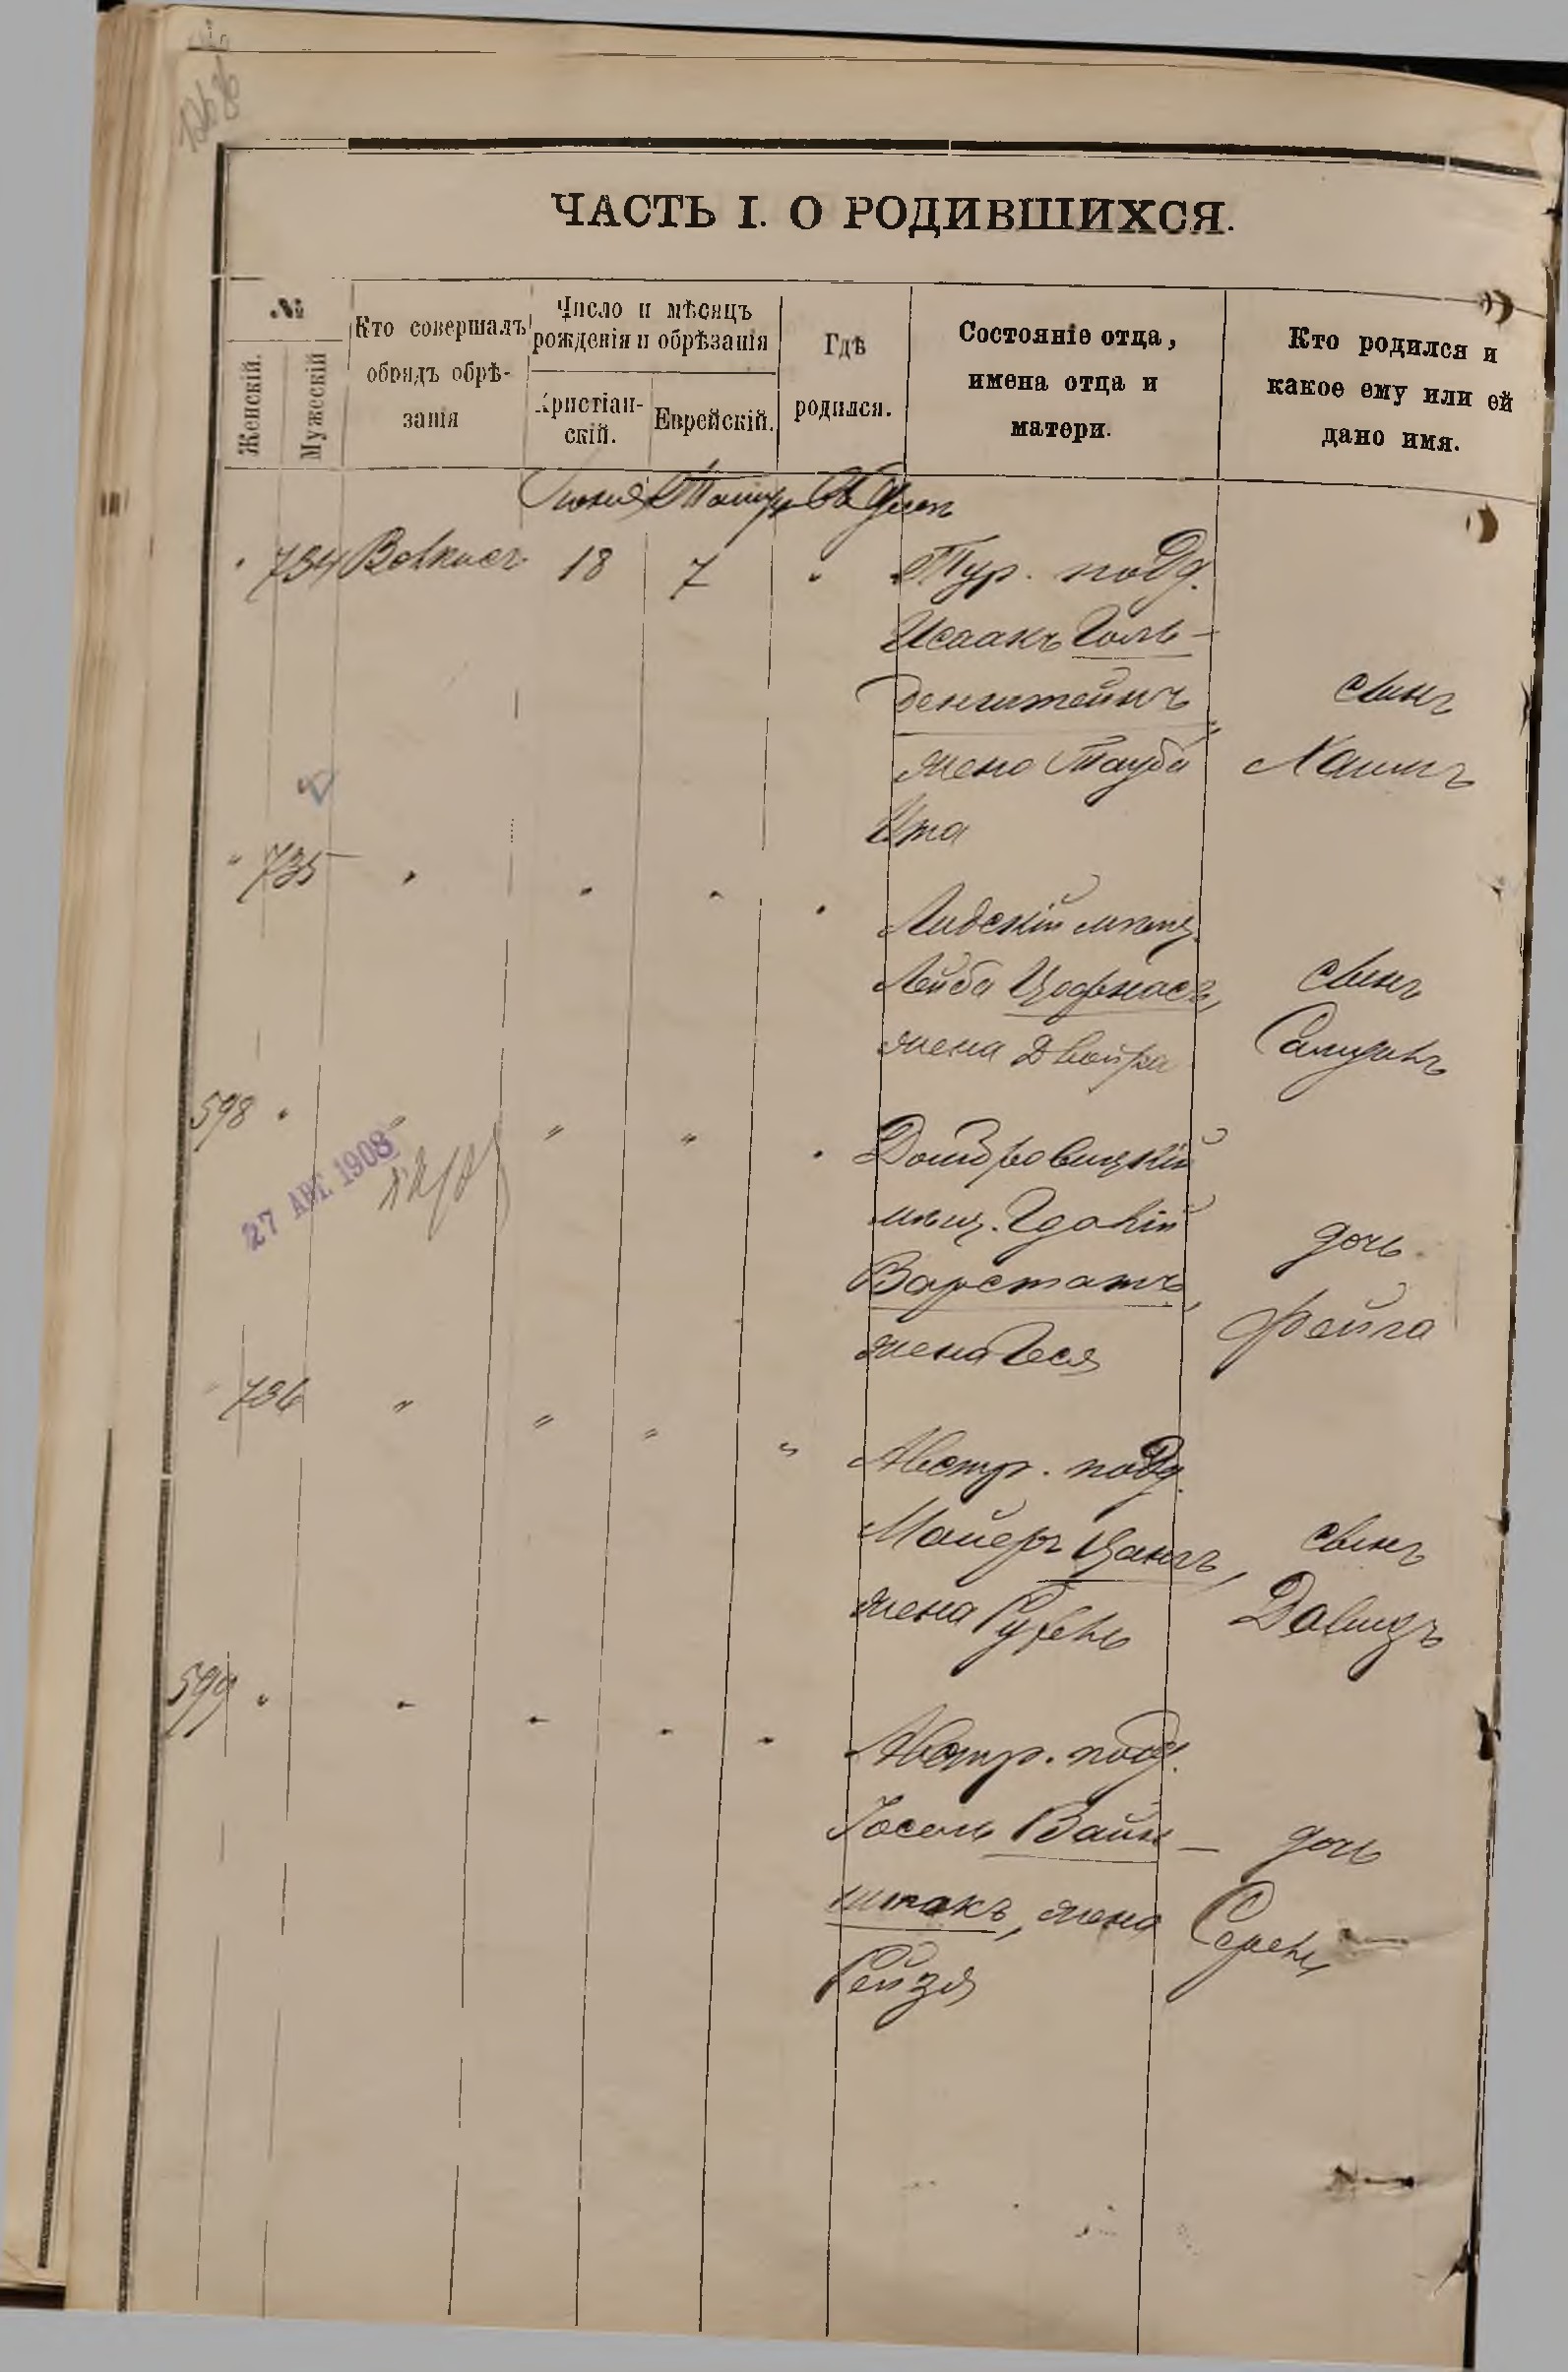 ЧАСТЬ I. О РОДИВШИХСЯ.
№
Женскій.
Мужескій
Кто совершалъ
обрядъ обрѣ-
занія
Число и мѣсяцъ
рожденія и обрѣзанія
Христіан-
скій.
Еврейскій.
Гдѣ
родился.
Состояніе отца,
имена отца и
матери.
Кто родился и
какое ему или ей
дано имя.
Іюня
" 734 18 7 " Тур. подд.
Исаакъ Голь-
денштейнъ,
жена Тауба
Ита
сынъ
Хаимъ
" 735 " " " "
Лидскій мѣщ.
Лейба Цофнасъ,
жена Двойра
сынъ
598 " " " " "
27 АВГ. 1908
Домбровицкій
мѣщ.
Варстатъ,
жена Геся
дочь
Фейга
" 736 " " " "
Австр. подд.
Майеръ Цангъ,
жена
сынъ
Давидъ
599 " " " " "
Австр. подд.
Іосель Вайн-
штокъ, жена
Рейзя
дочь